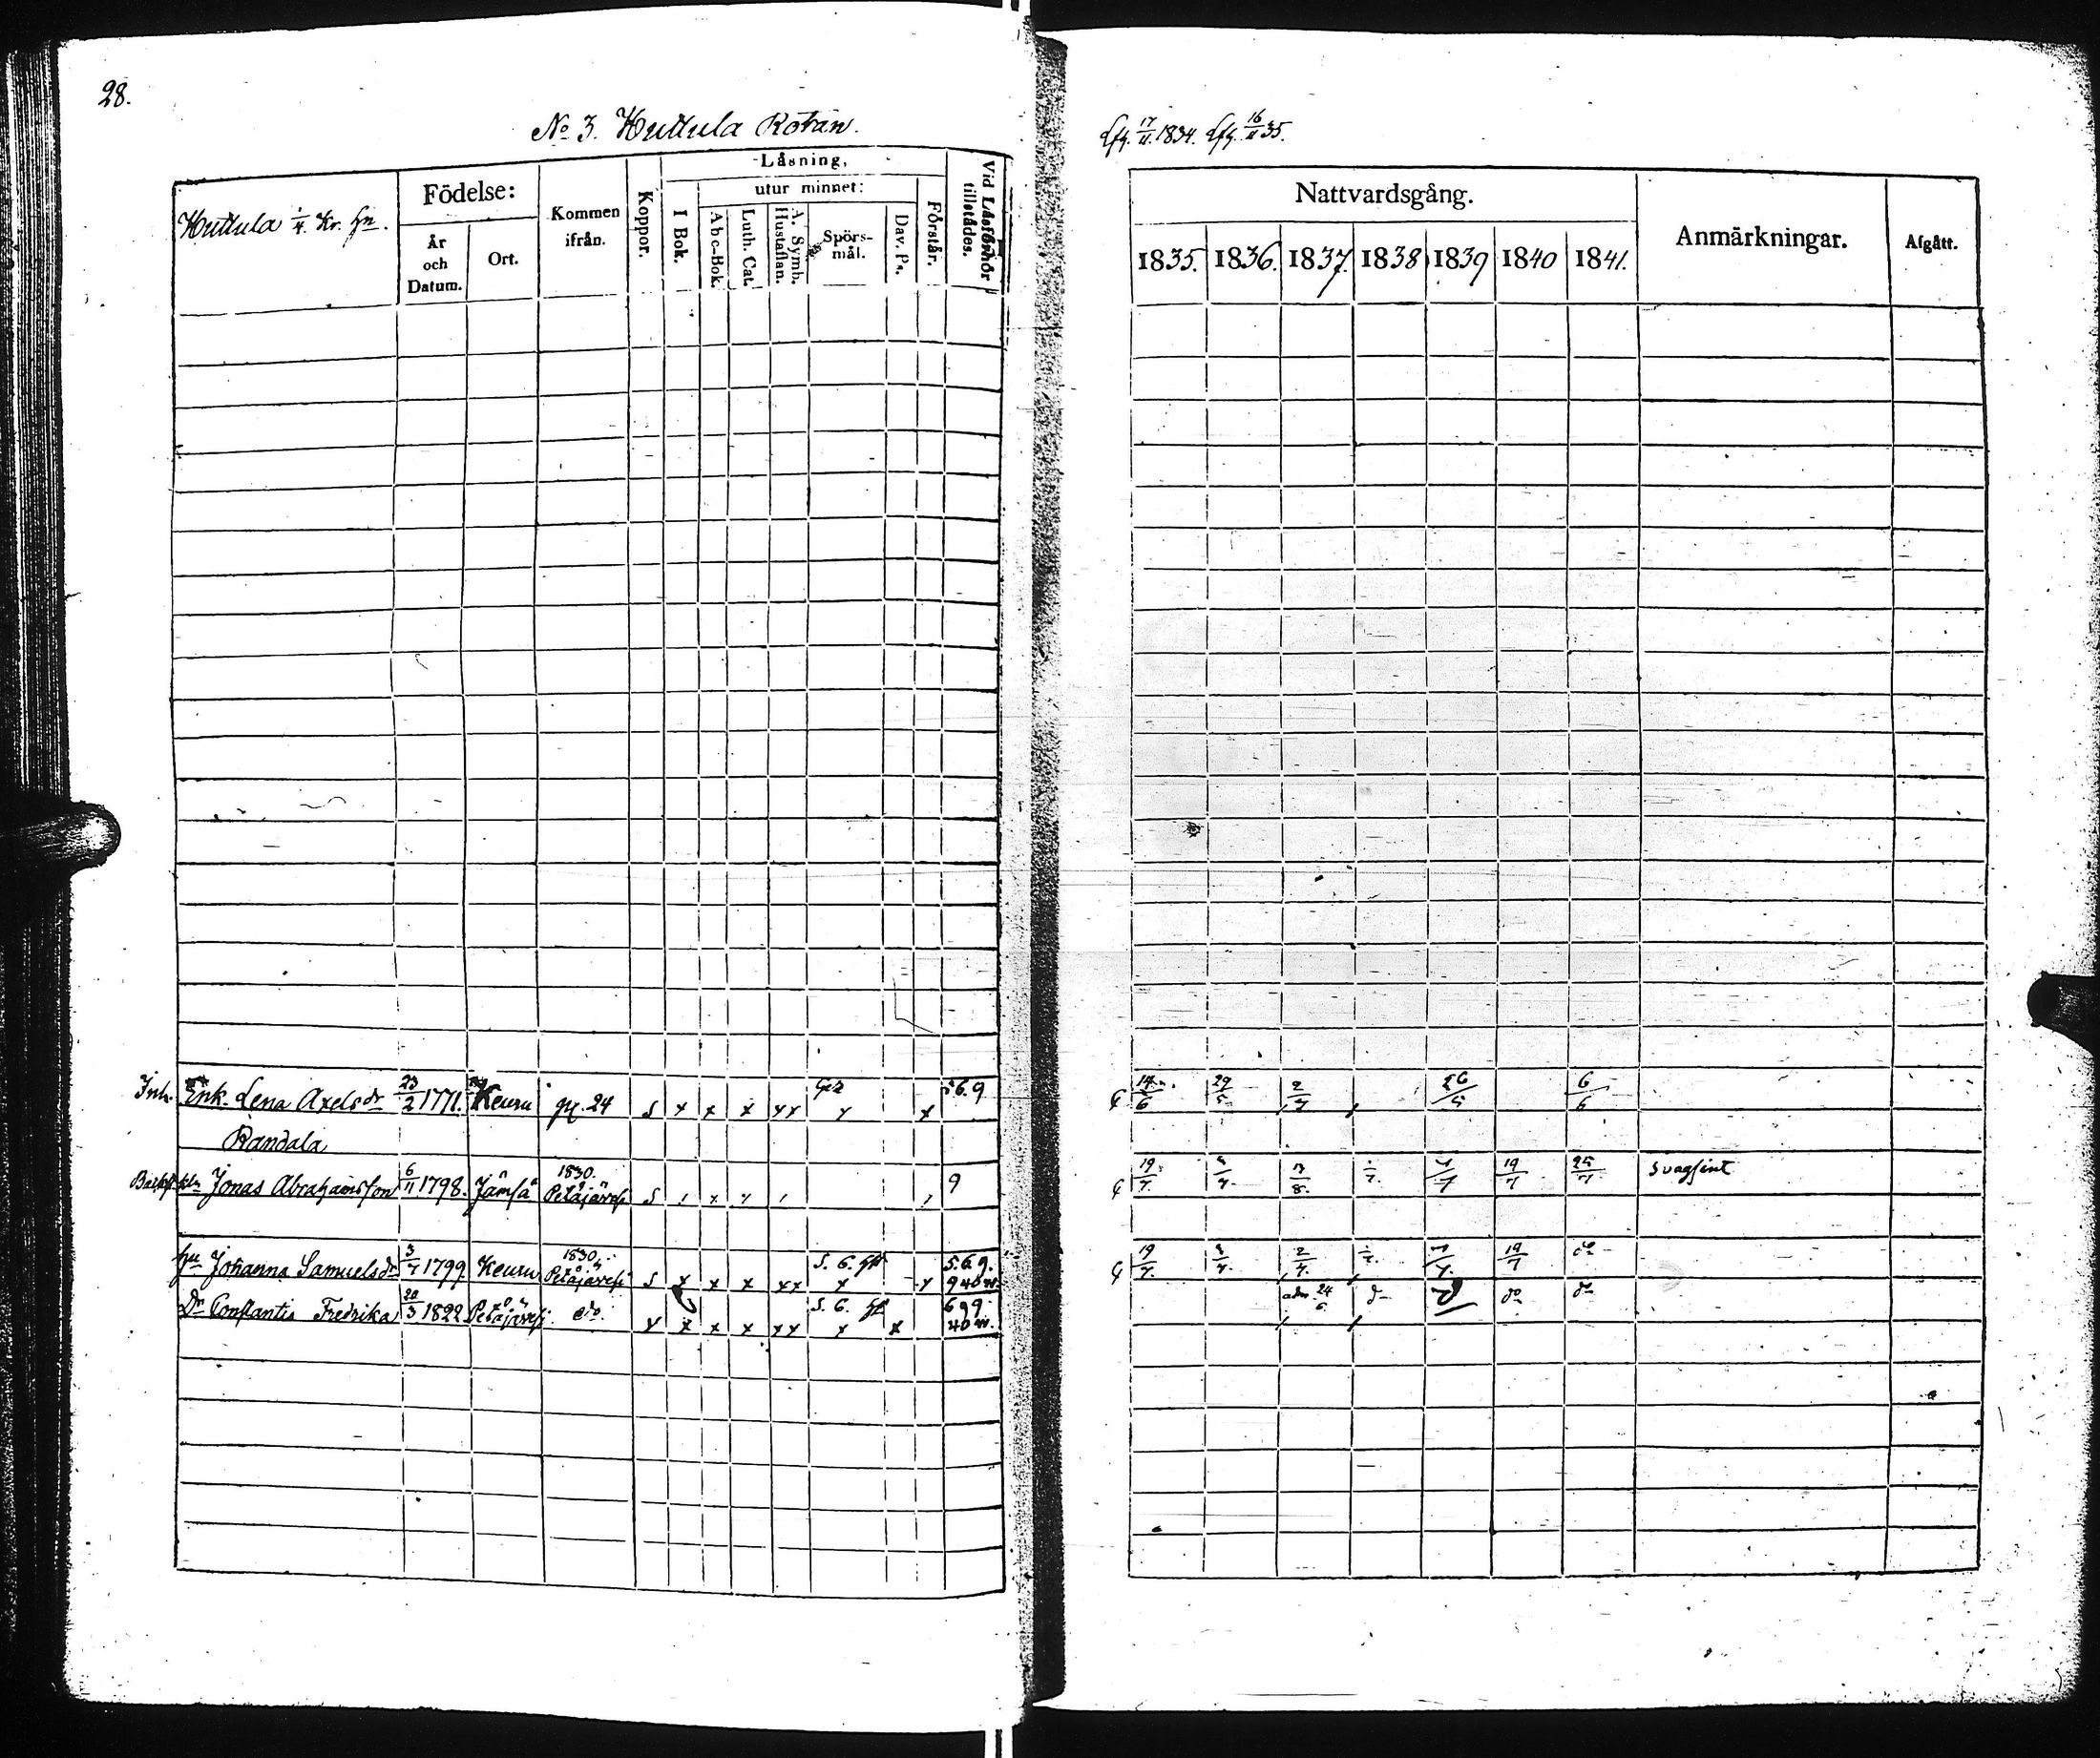 28.
No 3. Huttula Rotan.
Huttula 1/4 Kr. hn.
Födelse:
År och Datum.
Ort.
Kommen ifrån.
Koppor.
Läsning,
I Bok.
utur minnet:
Abc-Bok.
Luth. Cat.
A. Symb. Hustaflan.
Spörs-mål.
Dav. Ps.
Förstår.
Vid Läsförhör tillstädes.
Inh. Enk. Lena Axelsdr 23/2 1771. Keuru pg. 24 s x x x xx x x 5 6. 9
Randala
Jonas Abrahamsson 6/11 1798. Jämsä 1830. Petäjävesi s 9
hu Johanna Samuelsdr 3/7 1799. Keuru 1830. Petäjävesi s x x x xx 5. 6. x x 5. 6. 9. 9 40 w.
Dr Constantia Fredrika 20/3 1822 Petäjävesi do x x x xx 5. 6. x x 6 9 9. 40 w.
Lfg. 17/11. 1834. Lfg. 16/11 35.
Nattvardsgång.
1835. 1836. 1837. 1838 1839 1840 1841.
Anmärkningar.
Afgått.
29/5 2/7 26/5 6/6
19/7. 19/7 25/7 svagsint
19/7. 2/7. 19/7 do
adm. 24/6 do do